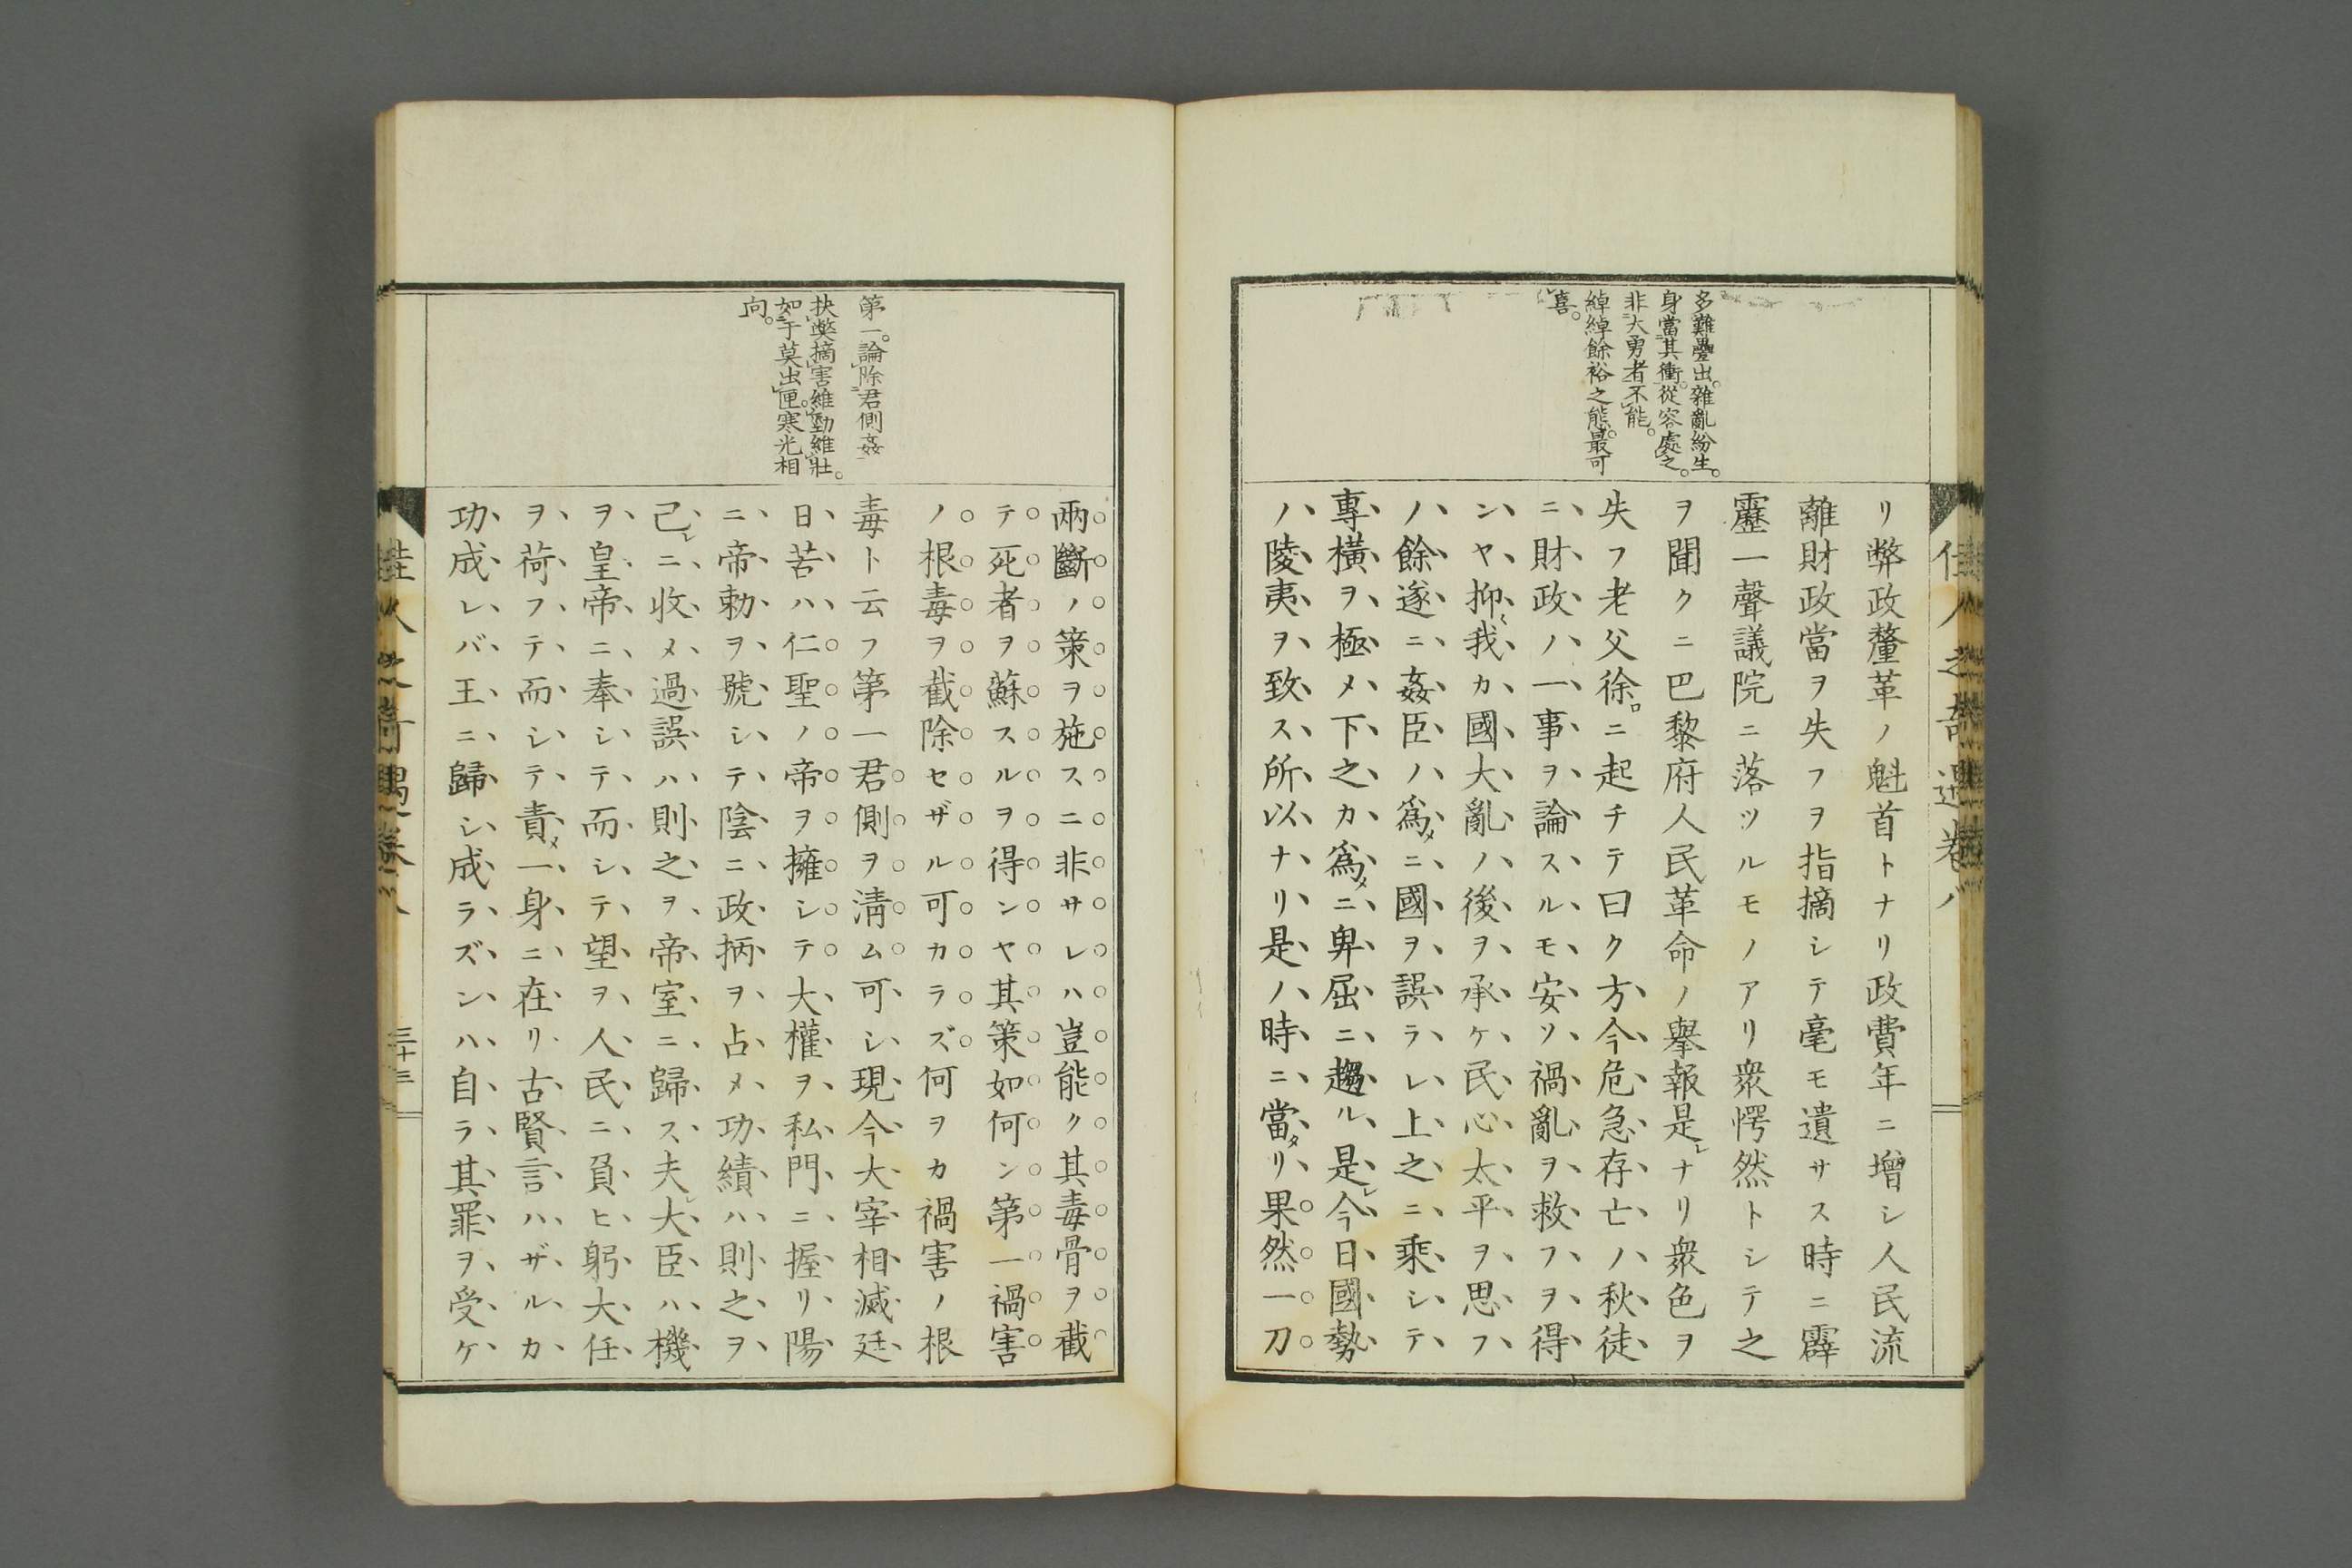 多難疊出。雜亂紛生。
身當其衝。從容處之。
非大勇者不能。
綽綽餘裕之態。最可
喜。
リ弊政釐革ノ魁首トナリ政費年ニ增シ人民流
離財政當ヲ失フヲ指摘シテ毫モ遺サス時ニ霹
靂一聲議院ニ落ツルモノアリ衆愕然トシテ之
ヲ聞クニ巴黎府人民革命ノ擧報是レナリ衆色ヲ
失フ老父徐ロニ起チテ曰ク方今危急存亡ノ秋徒
ニ財政ノ一事ヲ論スルモ安ソ禍亂ヲ救フヲ得
ンヤ抑〻我カ國大亂ノ後ヲ承ケ民心太平ヲ思フ
ノ餘遂ニ姦臣ノ爲メニ國ヲ誤ラレ上之ニ乘シテ
專橫ヲ極メ下之カ爲メニ卑屈ニ趨ル是レ今日國勢
ノ陵夷ヲ致ス所以ナリ是ノ時ニ當タリ果然一刀
佳人之奇遇卷八
第一。論除君側姦
抉弊摘害維勁維壯。
如干莫出匣。寒光相
向。
兩斷ノ策ヲ施スニ非サレハ豈能ク其毒骨ヲ截
テ死者ヲ蘇スルヲ得ンヤ其策如何ン第一禍害
ノ根毒ヲ截除セザル可カラズ何ヲカ禍害ノ根
毒ト云フ第一君側ヲ淸ム可シ現今大宰相滅廷
日苦ハ仁聖ノ帝ヲ擁シテ大權ヲ私門ニ握リ陽
ニ帝勅ヲ號シテ陰ニ政柄ヲ占メ功績ハ則之ヲ
己レニ收メ過誤ハ則之ヲ帝室ニ歸ス夫レ大臣ハ機
ヲ皇帝ニ奉シテ而シテ望ヲ人民ニ負ヒ躬大任
ヲ荷フテ而シテ責メ一身ニ在リ古賢言ハザルカ
功成レバ王ニ歸シ成ラズンハ自ラ其罪ヲ受ケ
佳人之奇遇卷八
三十三